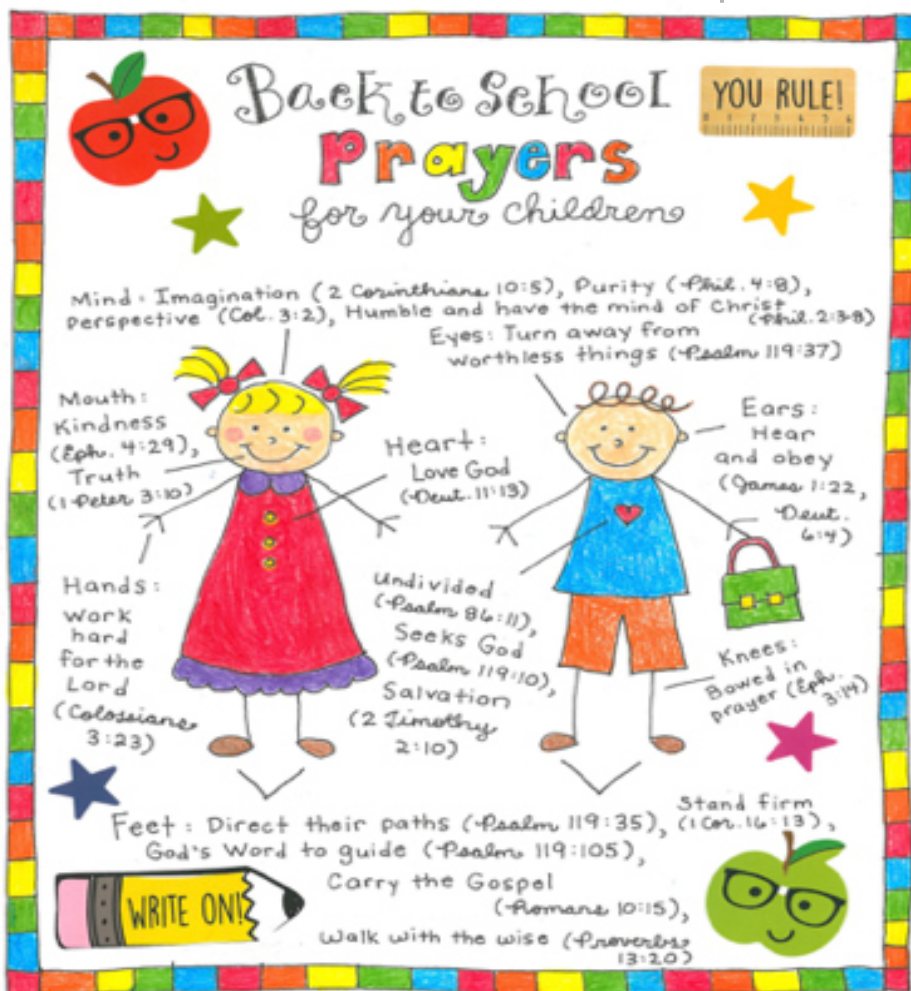 Back to School
YOU RULE!
0 1 2 3 4 5 6
Prayers
for your children
Mind: Imagination (2 Corinthians 10:5), Purity (Phil. 4:8),
Perspective (Col. 3:2), Humble and have the mind of Christ
(Phil. 2:3-8)
Eyes: Turn away from
worthless things (Psalm 119:37)
Mouth:
Kindness
(Eph. 4:29),
Truth
(1 Peter 3:10)
Heart:
Love God
(Deut. 11:13)
Ears:
Hear
and obey
(James 1:22,
Deut.
6:4)
Hands:
work
hard
for the
Lord
(Colossians
3:23)
Undivided
(Psalm 86:11),
Seeks God
(Psalm 119:10),
Salvation
(2 Timothy
2:10)
Knees:
Bowed in
prayer (Eph.
3:14)
Feet: Direct their paths (Psalm 119:35), Stand firm
(1 Cor. 16:13),
God's Word to guide (Psalm 119:105),
Carry the Gospel
(Romans 10:15),
Walk with the wise (Proverbs
13:20)
WRITE ON!